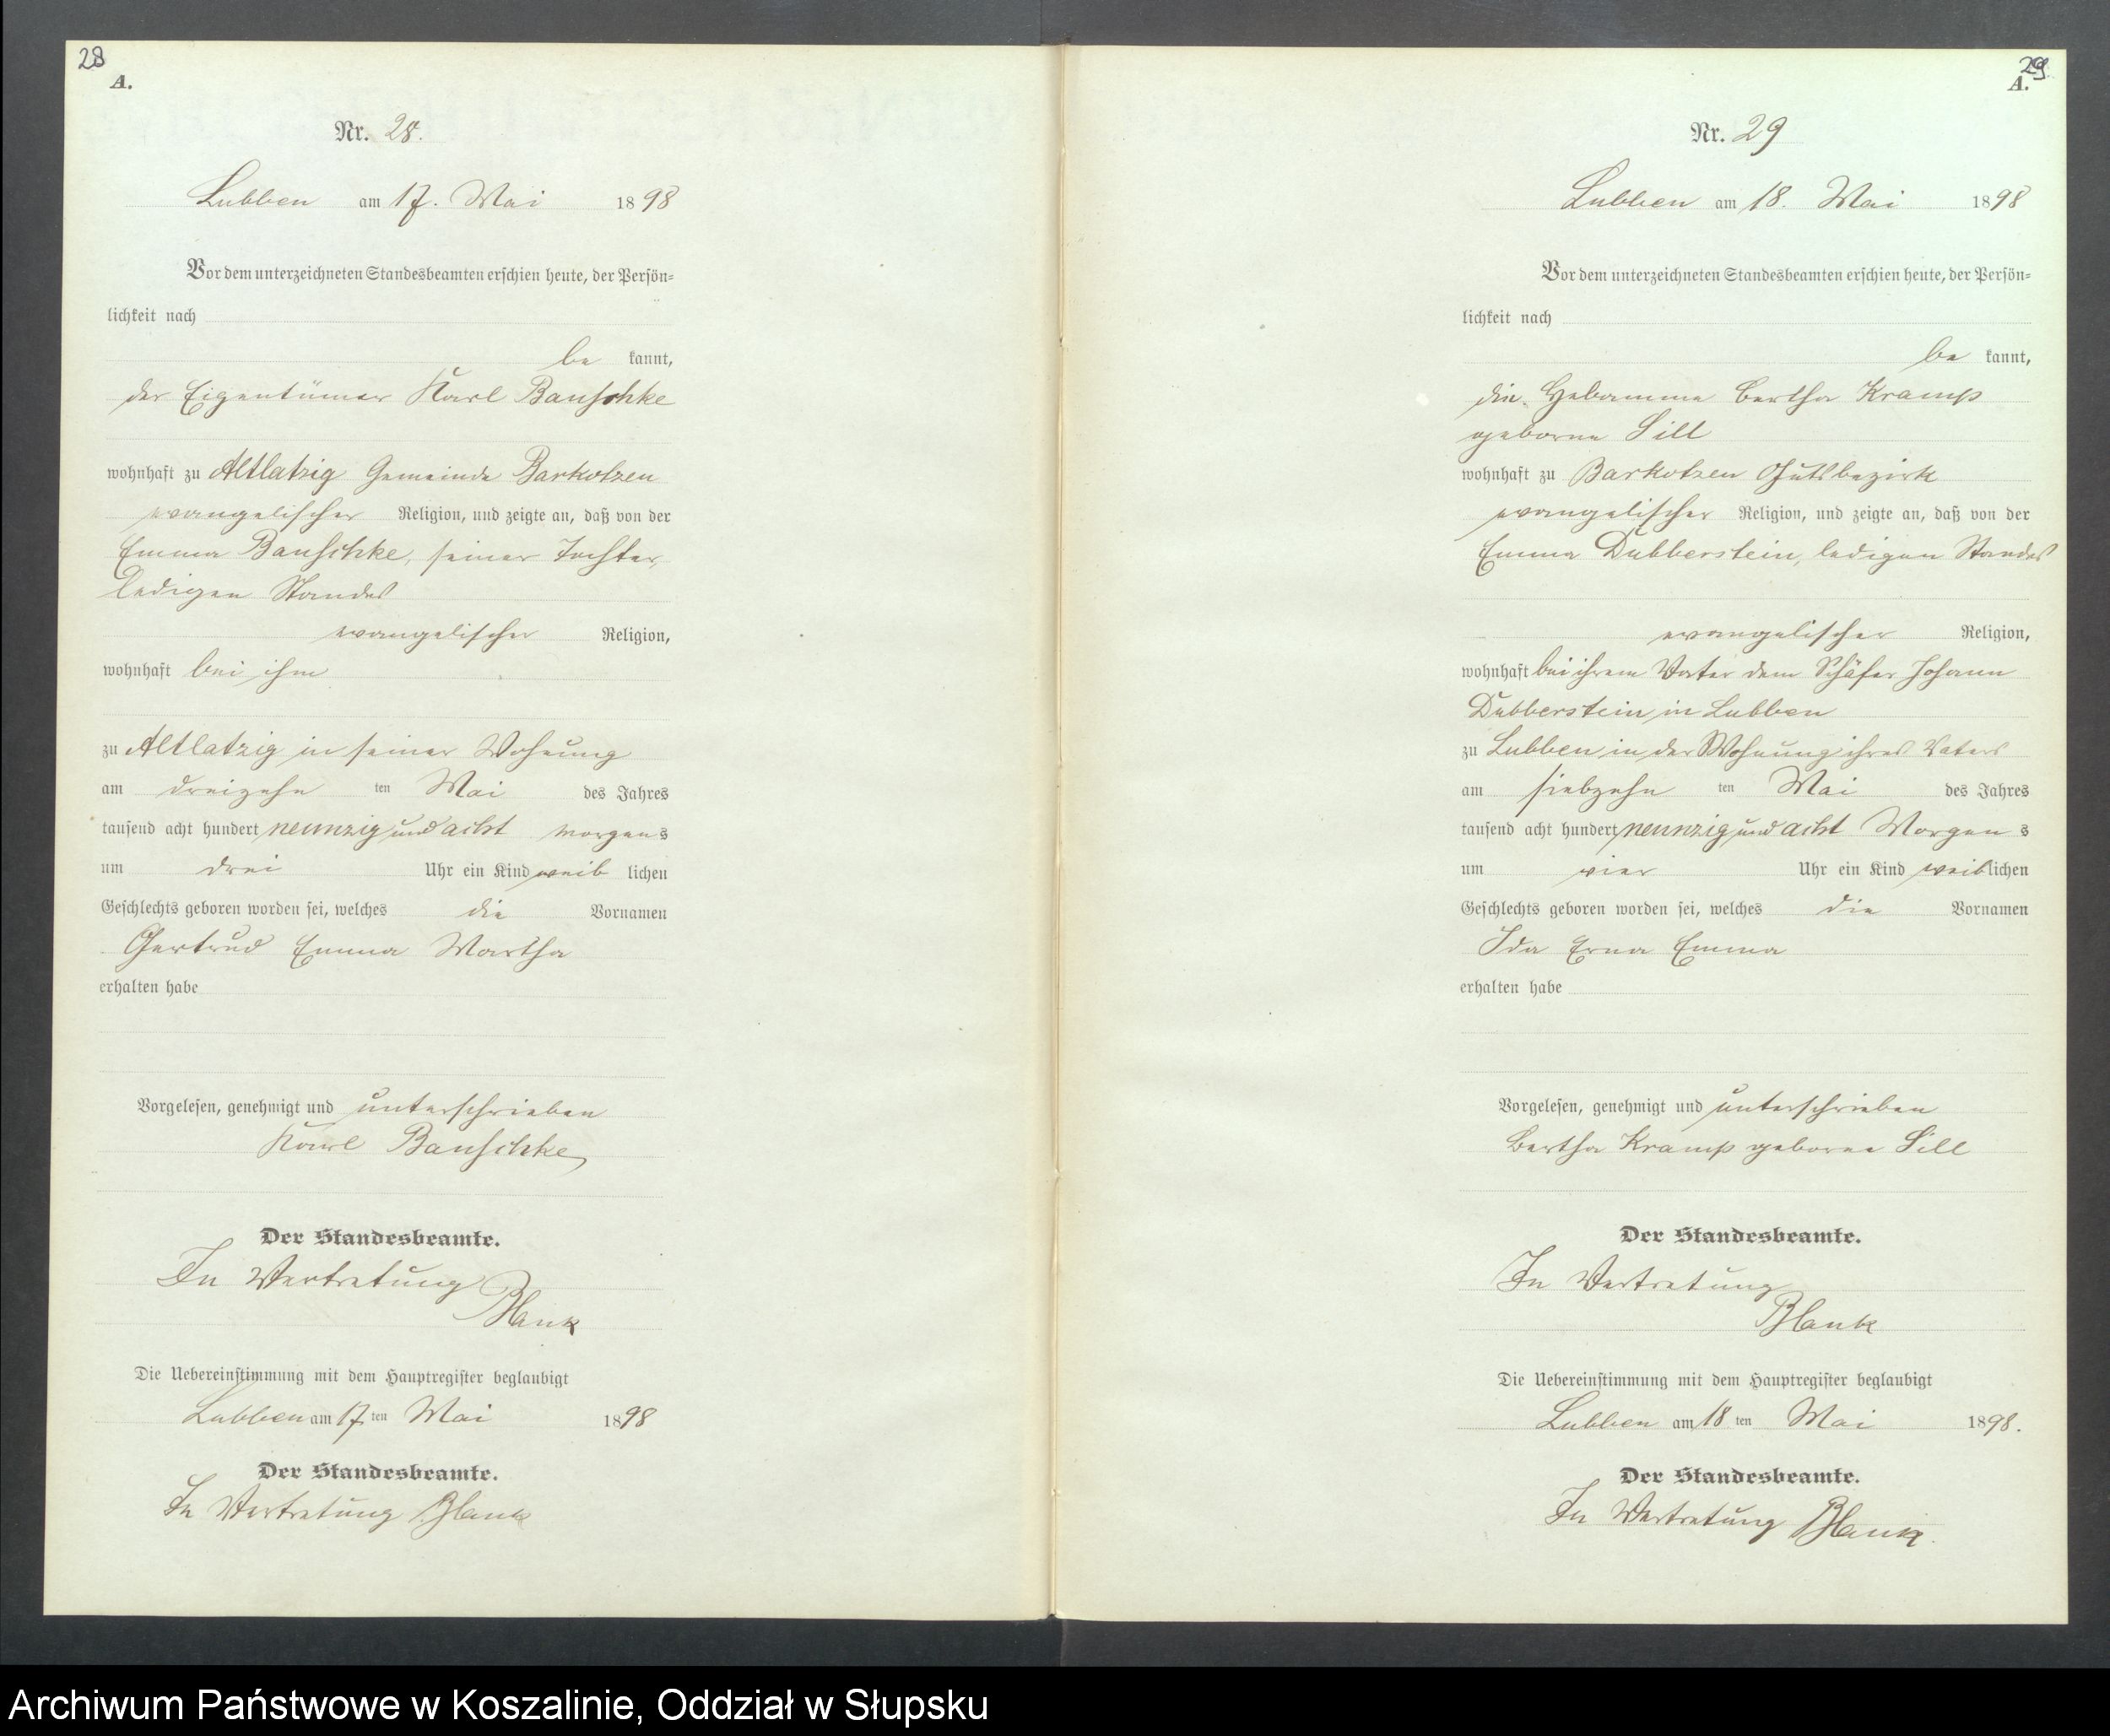 28
A.
Nr. 28.
Lubben am 17. Mai 1898
Vor dem unterzeichneten Standesbeamten erschien heute, der Persön-
lichkeit nach
be kannt,
der Eigentümer Karl Bauschke
wohnhaft zu Altlatzig Gemeinde Barkotzen
evangelischer Religion, und zeigte an, daß von der
Emma Bauschke, seiner Tochter,
ledigen Standes
evangelischer Religion,
wohnhaft bei ihm
zu Altlatzig in seiner Wohnung
am dreizehn ten Mai des Jahres
tausend acht hundert neunzig und acht Morgens
um drei Uhr ein Kind weib lichen
Geschlechts geboren worden sei, welches die Vornamen
Gertrud Emma Martha
erhalten habe
Vorgelesen, genehmigt und unterschrieben
Karl Bauschke
Der Standesbeamte.
In Vertretung
Blank
Die Uebereinstimmung mit dem Hauptregister beglaubigt
Lubben am 17 ten Mai 1898
Der Standesbeamte.
In Vertretung Blank
29
A.
Nr. 29
Lubben am 18. Mai 1898
Vor dem unterzeichneten Standesbeamten erschien heute, der Persön-
lichkeit nach
be kannt,
die Hebamme Bertha Kramp
geborne Sill
wohnhaft zu Barkotzen Gutsbezirk
evangelischer Religion, und zeigte an, daß von der
Emma Dubberstein, ledigen Standes
evangelischer Religion,
wohnhaft bei ihrem Vater dem Schäfer Johann
Dubberstein in Lubben
zu Lubben in der Wohnung ihres Vaters
am siebzehn ten Mai des Jahres
tausend acht hundert neunzig und acht Morgens
um vier Uhr ein Kind weiblichen
Geschlechts geboren worden sei, welches die Vornamen
Ida Erna Emma
erhalten habe
Vorgelesen, genehmigt und unterschrieben
Bertha Kramp geborne Sill
Der Standesbeamte.
In Vertretung
Blank
Die Uebereinstimmung mit dem Hauptregister beglaubigt
Lubben am 18 ten Mai 1898.
Der Standesbeamte.
In Vertretung Blank.
Archiwum Państwowe w Koszalinie, Oddział w Słupsku